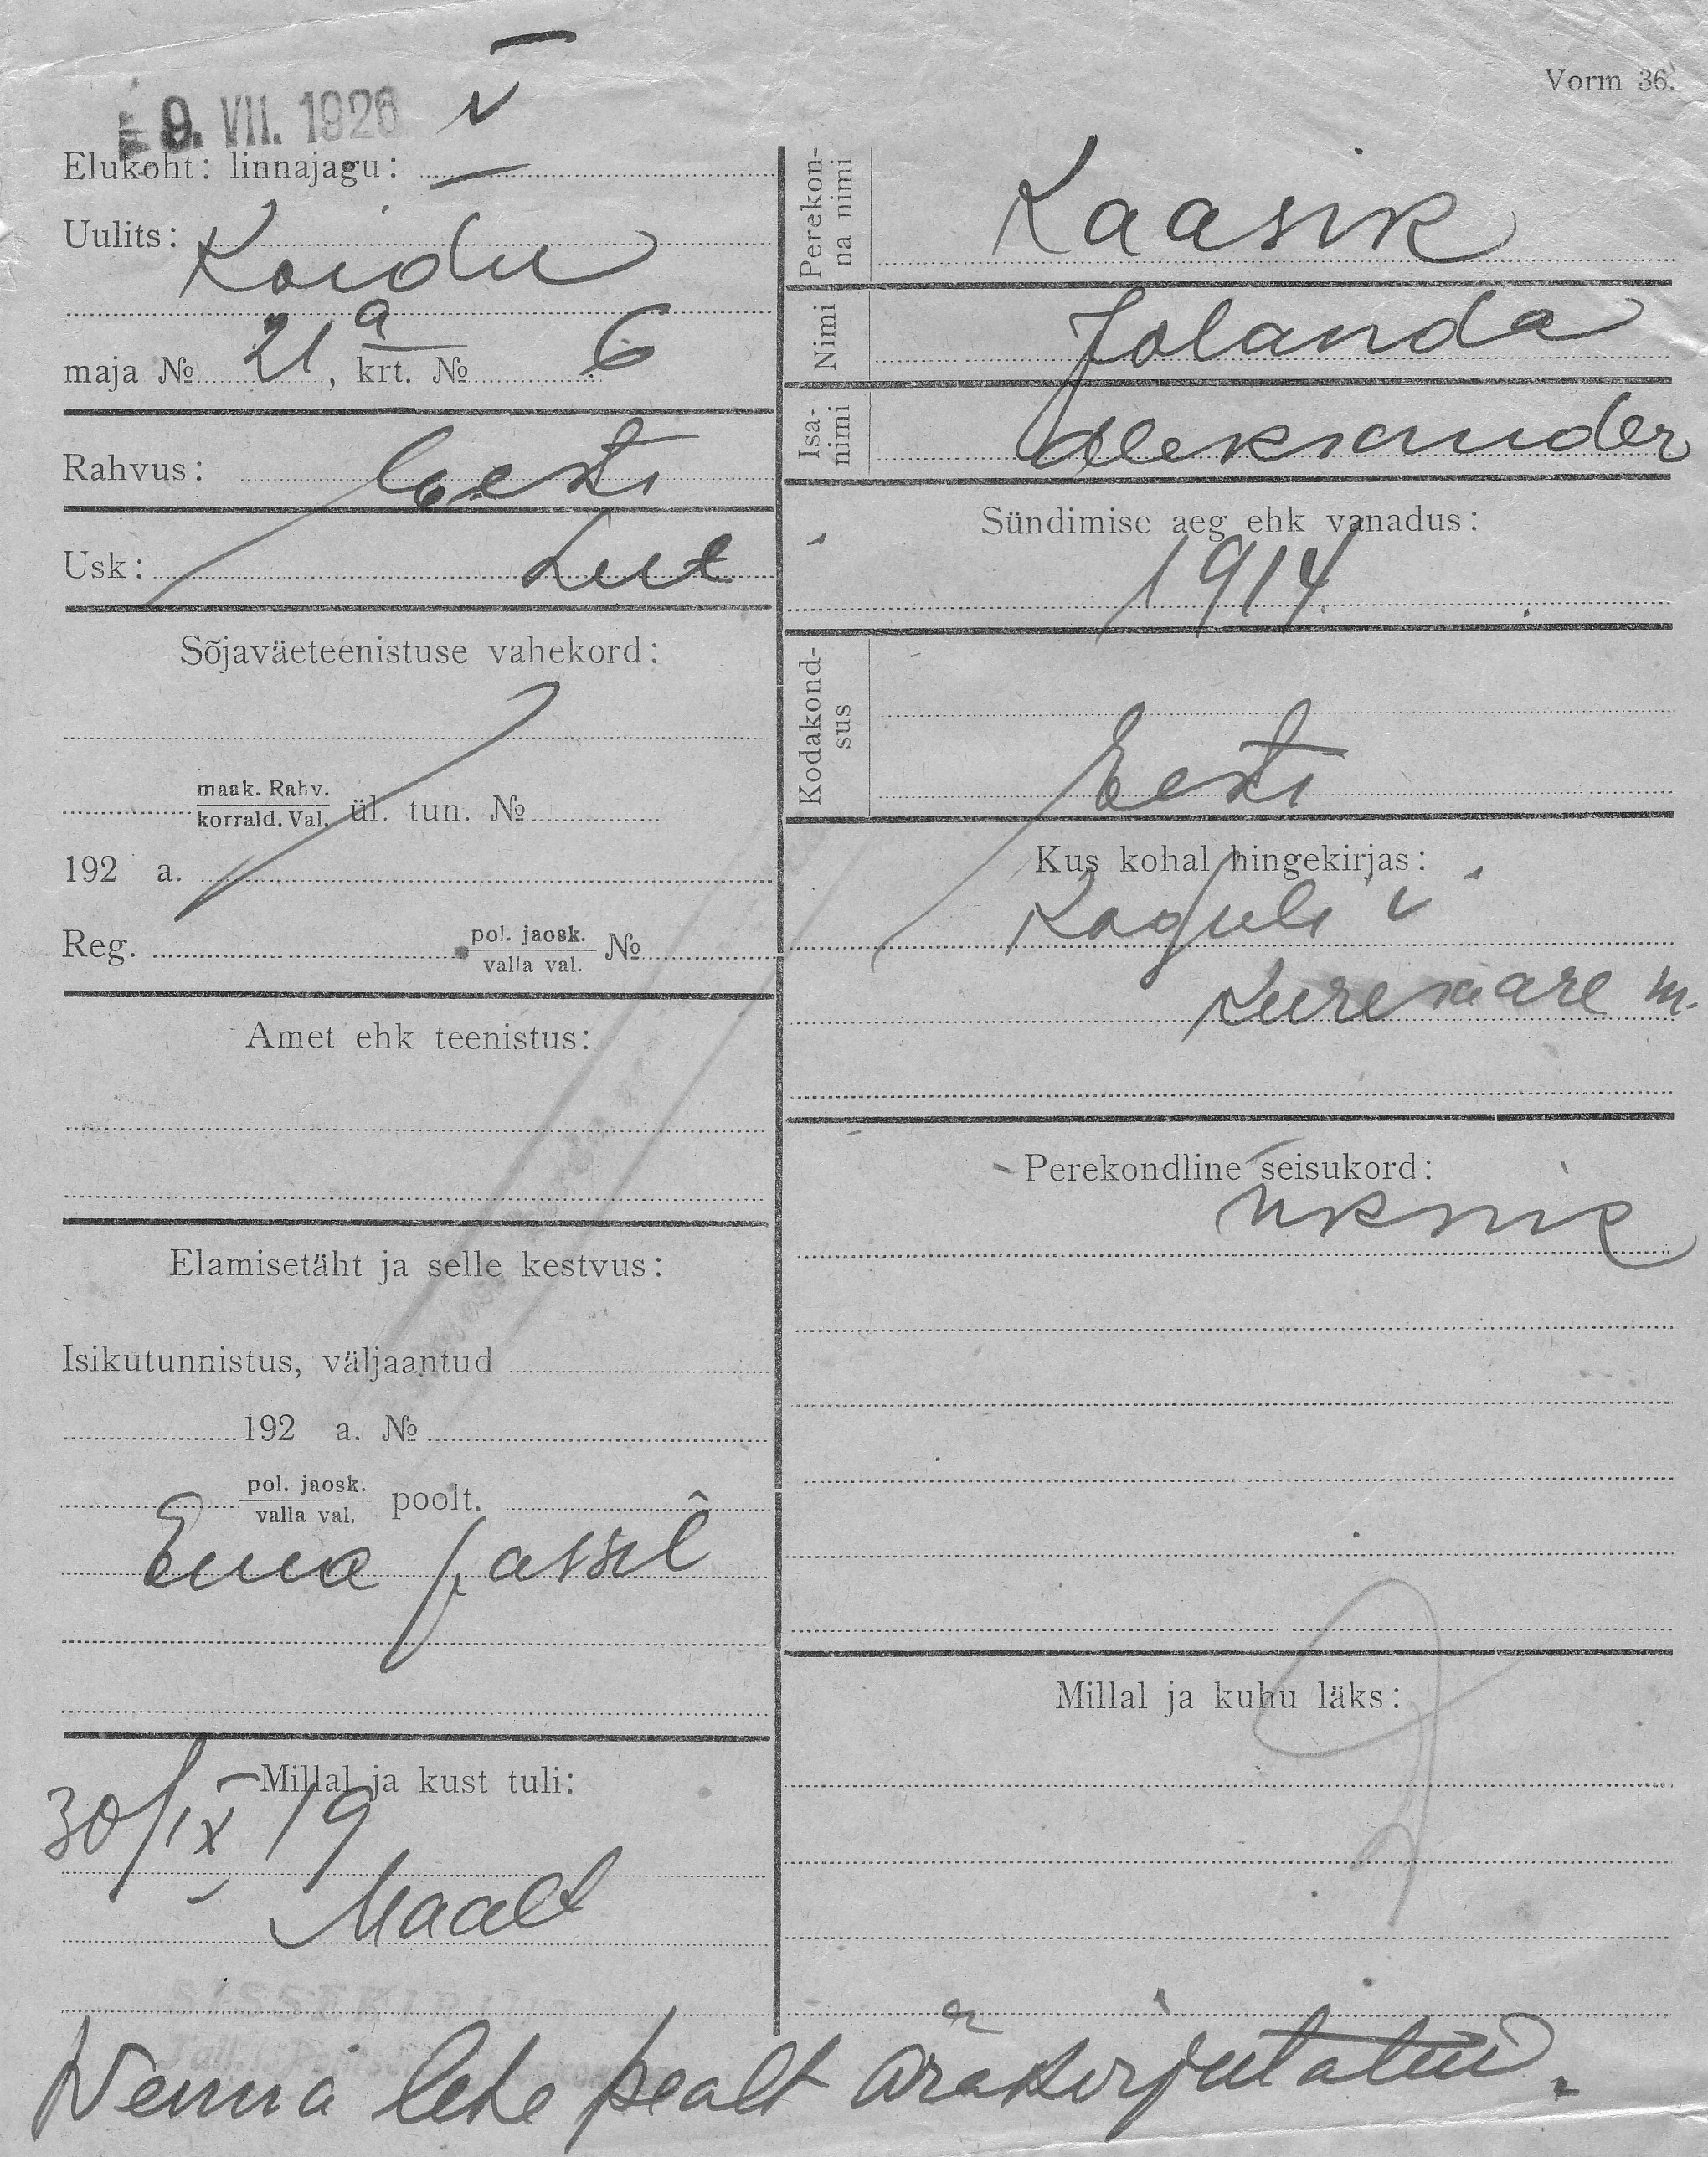 Vorm 36.
9. VII. 1926
Elukoht: linnajagu: V
Uulits: Koidu
maja № 21a, krt. № 6
Rahvus: Eesti
Usk: Lut
Sõjaväeteenistuse vahekord:
maak. Rahv.
korrald. Val. ül. tun. №
192 a.
Reg. pol. jaosk.
valla val. №
Amet ehk teenistus:
Elamisetäht ja selle kestvus:
Isikutunnistus, väljaantud
192 a. №
pol. jaosk.
valla val. poolt.
Millal ja kust tuli:
30/IX 19
Maalt
Perekon-
na nimi
Kaasik
Nimi
Jolanda
Isa-
nimi
Aleksander
Sündimise aeg ehk vanadus:
1914
Kodakond-
sus
Eesti
Kus kohal hingekirjas:
Kogula v
Kuresaare m.
Perekondline seisukord:
üksik
Millal ja kuhu läks:
SISSEKIRJUT
Wenna lehe pealt ärakirjutatud.